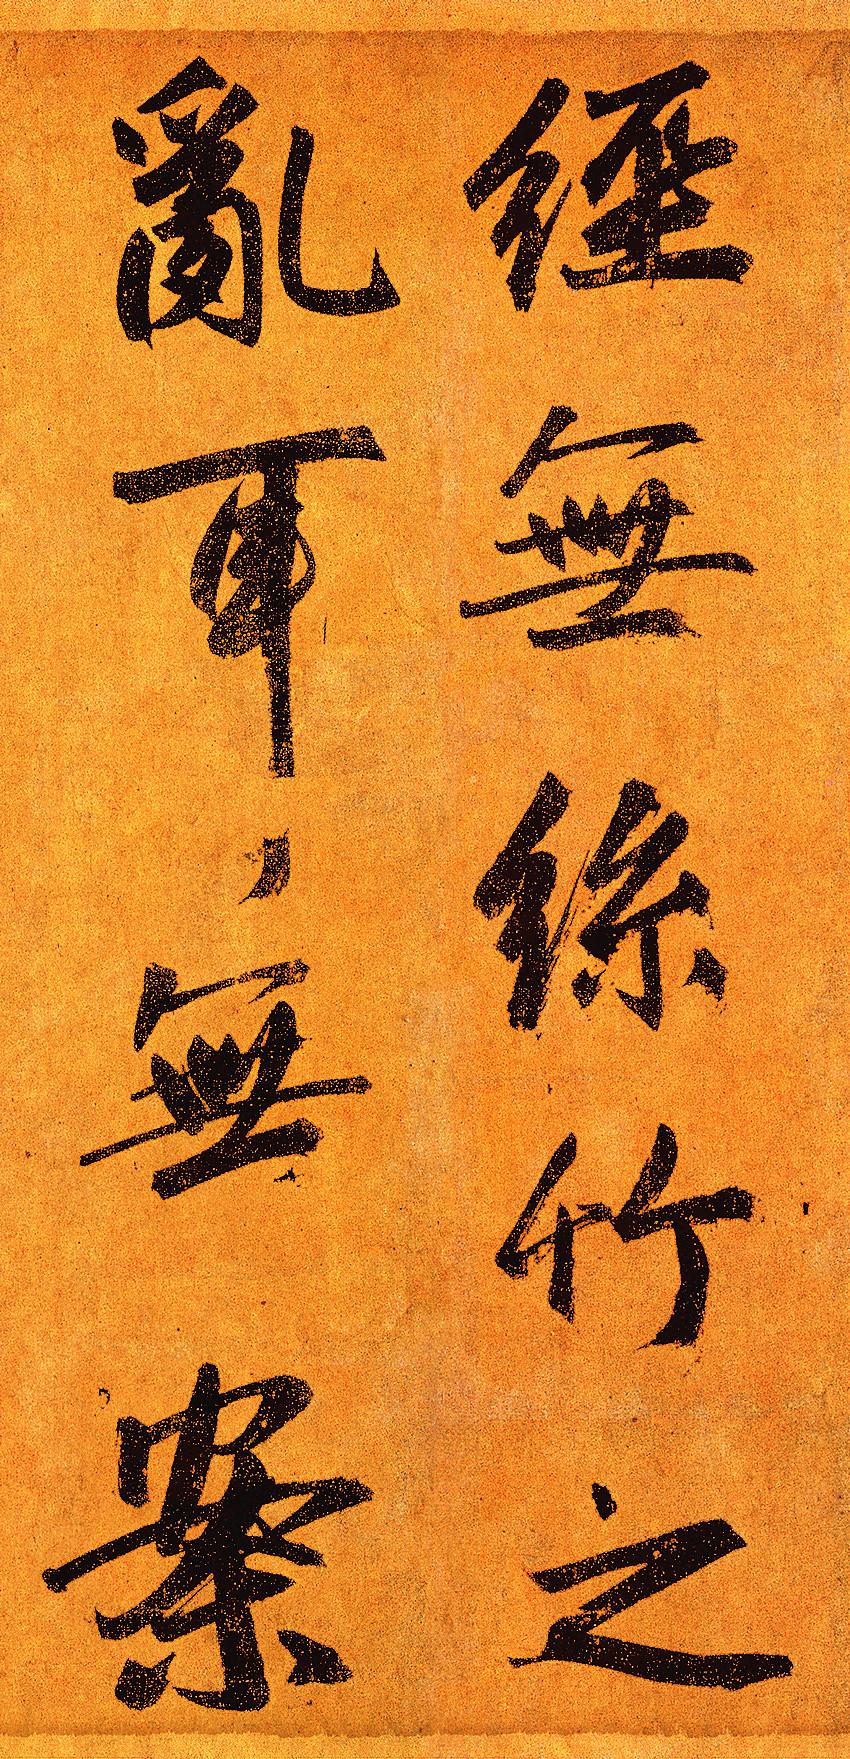 經無絲竹之
亂耳、無案